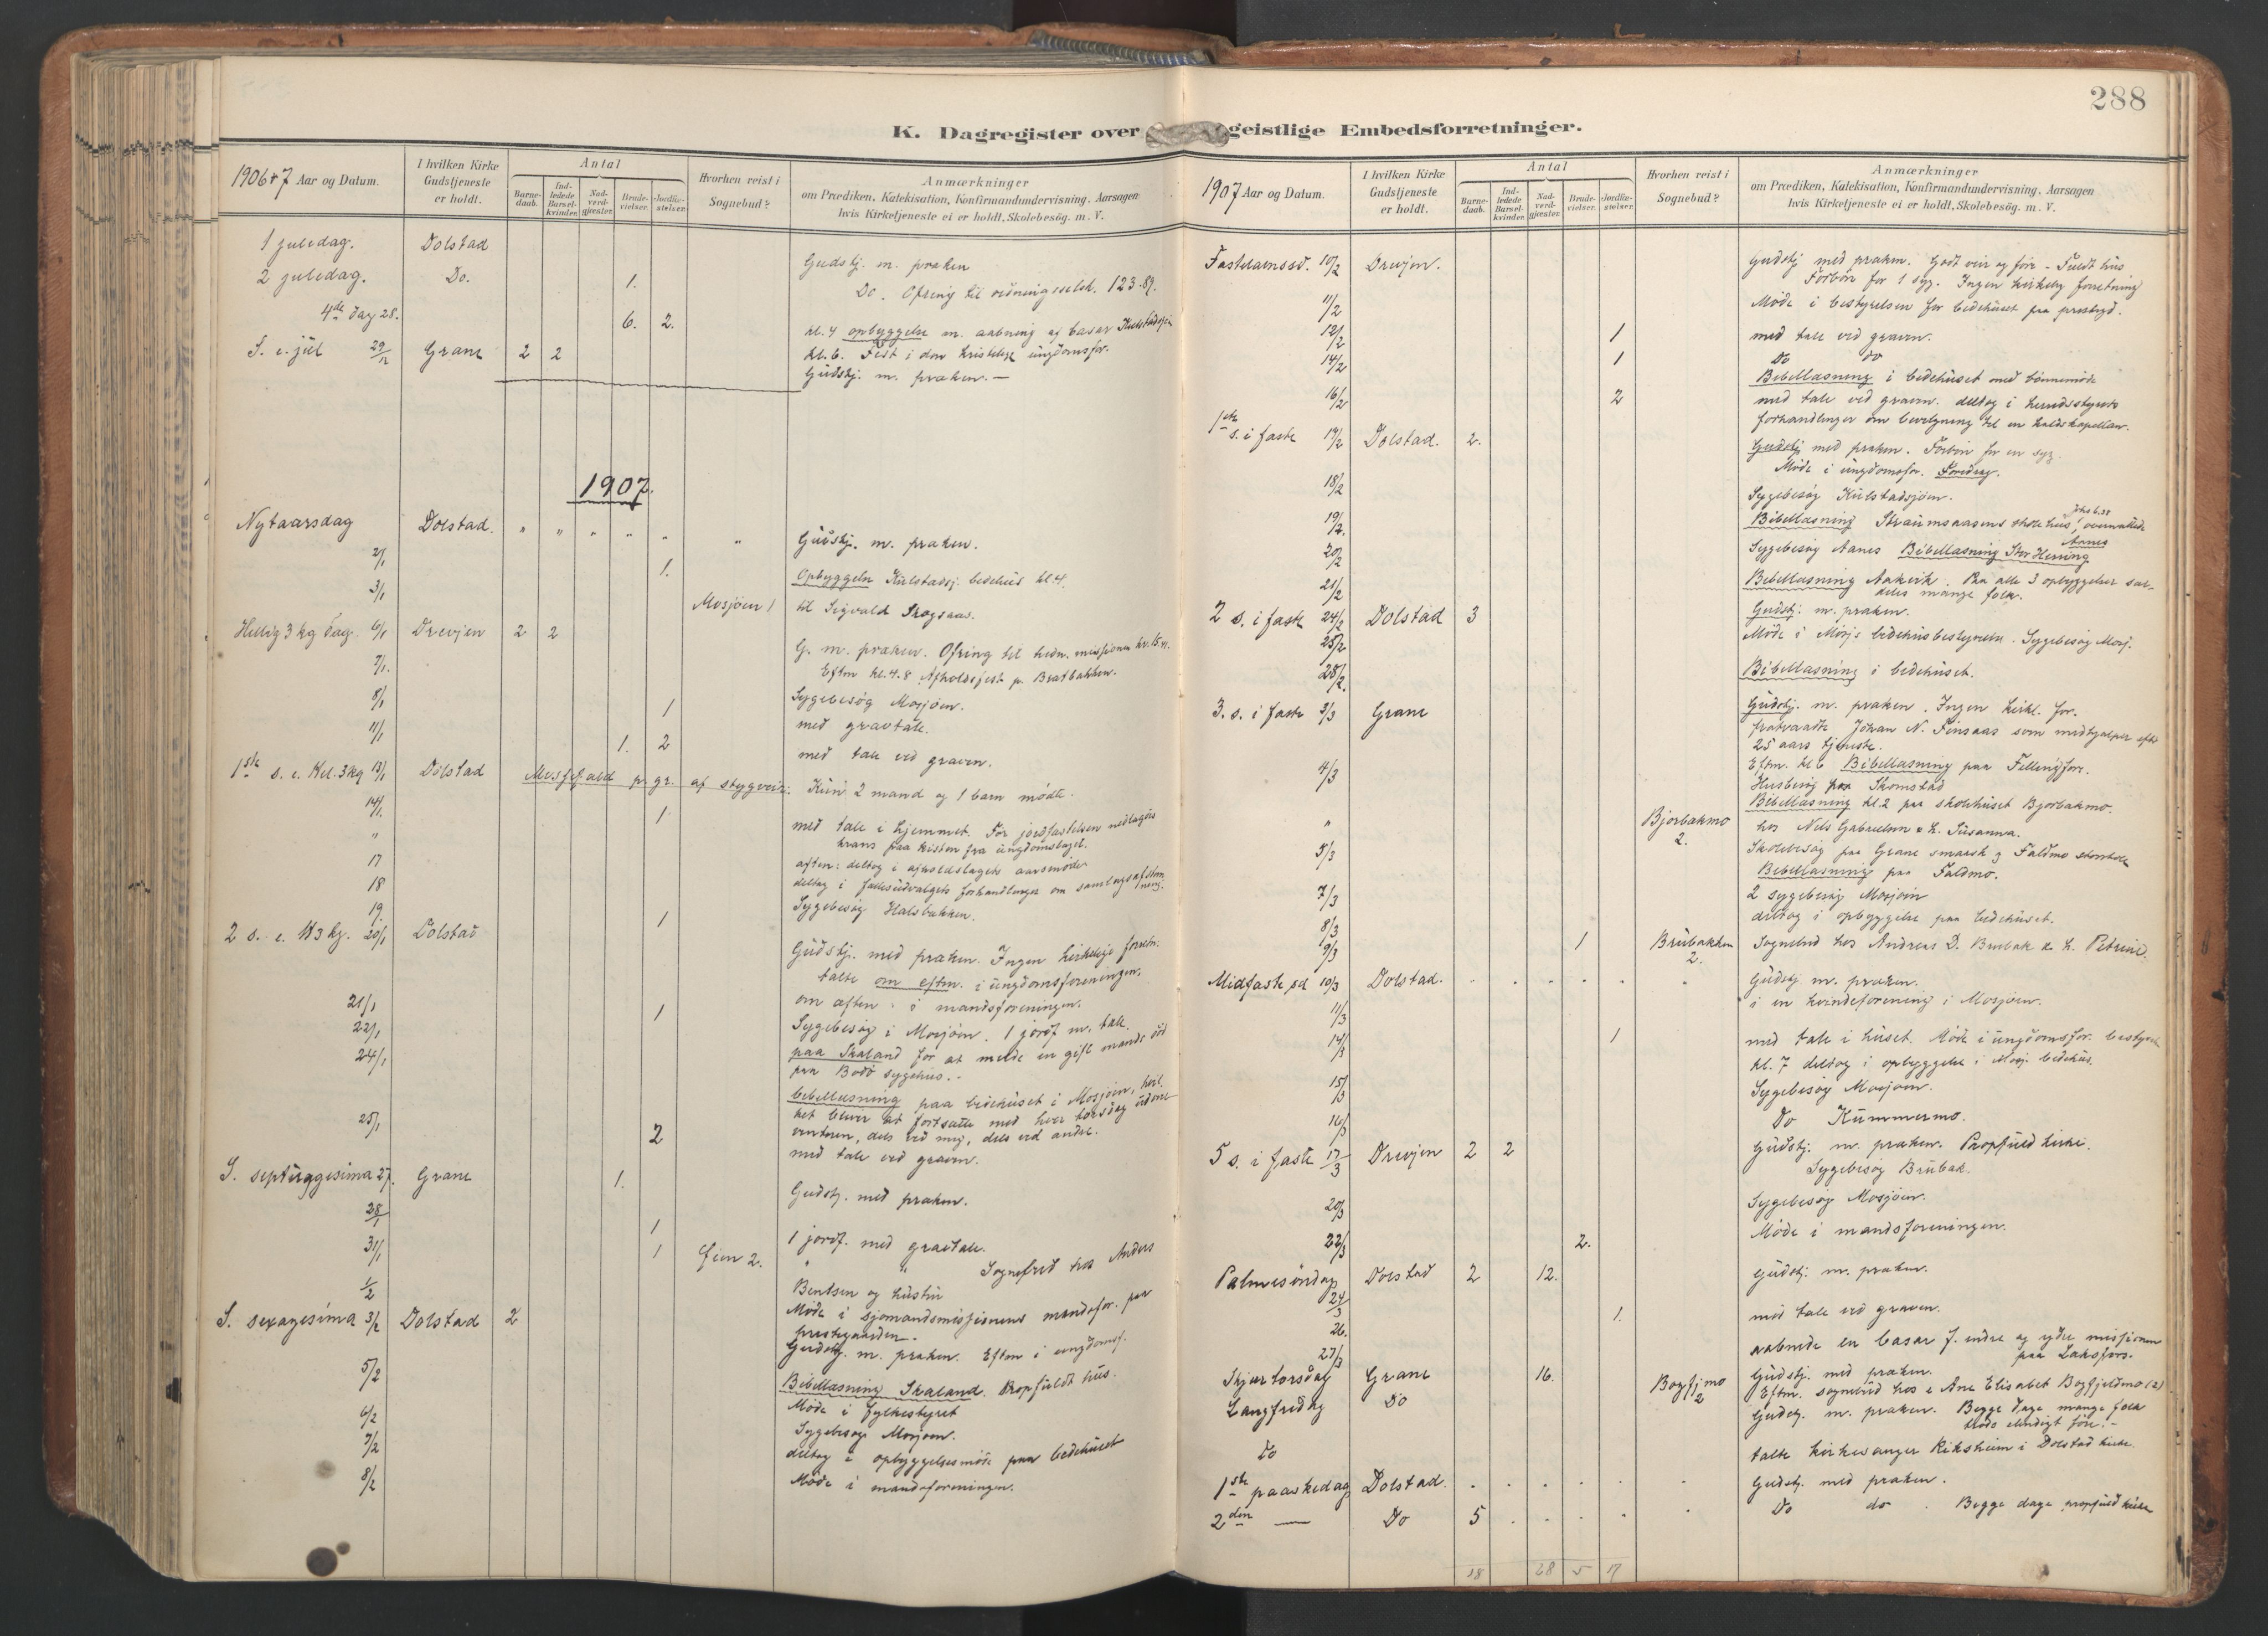 288
K. Dagregister over geistlige Embedsforretninger.
1906 & 7 Aar og Datum.
I hvilken Kirke Gudstjeneste er holdt.
Antal
Barnedaab.
Indledede Barselkvinder.
Nadverdgjester.
Brudevielser.
Jordfæstelser.
Hvorhen reist i Sognebud?
Anmærkninger
om Prædiken, Katekisation, Konfirmandundervisning, Aarsagen
hvis Kirketjeneste ei er holdt, Skolebesög. m. V.
1 juledag. Dolstad Gudstj. m. præken
2 juledag. Do. 1. Do. Ofring til redningsselsk. 123.89.
4de dag 28. 6. 2. kl. 4 opbyggelse m. aabning af basar Kulstadsjøen
kl. 6. Fest i den kristelige ungdomsfor.
S. e. jul 29/12 Grane 2 2 Gudstj. m. præken. —
1907.
Nytaarsdag Dolstad. " " " " " " Gudstj. m. præken.
2/1 1. Opbyggelse Kulstadsj. bedehus kl. 4.
3/1 Mosjøen 1 til Sigvald Skogsaas.
Hellig 3 kg dag. 6/1 Drevjen 2 2 G. m. præken. Ofring til hedn. missionen kr. 15.
Eftm kl. 4-8 Afholdsfest p. Bratbakken.
7/1. Sygebesøg Mosjøen.
8/1 1 med gravtale.
11/1 1. 2 med tale ved graven.
1ste s. e. Hel. 3 kg 13/1 Dolstad Messefald p. gr. af stygveir. Kun 2 mand og 1 barn mødte.
14/1. 1 med tale i hjemmet. Før jordfæstelsen nedlagdes
krans paa kisten fra ungdomslaget.
" aften: deltog i afholdslagets aarsmøde
17 deltog i fællesudvalgets forhandlinger om samlagsafstemning.
18 Sygebesøg Halsbakken.
19 1
2 s. e. H3 kg. 20/1 Dolstad Gudstj. med præken. Ingen kirkelige forretn.
talte om eftm. i ungdomsforeningen.
om aften i mandsforeningen.
21/1 1 Sygebesøg i Mosjøen. 1 jordf. m. tale.
22/1 paa Skaland for at melde en gift mands død
paa Bodø sygehus. -
24/1 bibellæsning paa bedehuset i Mosjøen, hvilket bliver at fortsætte med hver torsdag udover
vinteren, dels ved mig, dels ved andre.
25/1 2 med tale ved graven.
S. septuagesima 27. Grane 1. Gudstj. med præken.
28/1 1 1 jordf. med gravtale.
31/1 1 2. " " Sognebud hos Anders
Bentsen og hustru
1/2 Møde i sjømandsmissionens mandsfor. paa
prestegaarden.
S. sexagesima 3/2 Dolstad 2 Gudstj. m. præken. Eftm i ungdomsf.
5/2 Bibellæsning Skaland. Propfuldt hus.
Møde i fylkestyret
6/2 Sygebesøg Mosjøen.
7/2 deltog i opbyggelsesmøde paa bedehuset
8/2 Møde i mandsforeningen.
1907 Aar og Datum.
I hvilken Kirke Gudstjeneste er holdt.
Antal
Barnedaab.
Indledede Barselkvinder.
Nadverdgjester.
Brudevielser.
Jordfæstelser.
Hvorhen reist i Sognebud?
Anmærkninger
om Prædiken, Katekisation, Konfirmandundervisning, Aarsagen
hvis Kirketjeneste ei er holdt, Skolebesög. m. V.
Fastelamssd. 10/2 Drevjen. Gudstj med præken. Godt veir og føre - Fuldt hus
Forbøn for 1 syg. Ingen kirkelig forretning
11/2 Møde i bestyrelsen for bedehuset paa prestegd.
12/2 1 med tale ved graven.
14/2 1 Do do
Bibellæsning i bedehuset med bønnemøde
16/2 2 med tale ved graven. deltog i herredsstyrets
forhandlinger om bevilgning til en kaldskapellan.
1ste s. i faste 17/2 Dolstad. 2. Gudstj med præken. Forbøn for en syg.
Møde i ungdomsfor. Foredrag.
18/2 Sygebesøg Kulstadsjøen.
19/2. Bibellæsning Straumsaasens skolehus, overnattede
20/2 Sygebesøg Aanes Bibellæsning Stor Herring
21/2 Bibellæsning Aakvik. Paa alle 3 opbyggelser særdeles mange folk.
2 s. i faste 24/2 Dolstad 3 Gudstj. m. præken.
25/2 Møde i Mosjs bedehusbestyrelse. Sygebesøg Mosj.
28/2. Bibellæsning i bedehuset.
3. s. i faste 3/3 Grane Gudstj. m. præken. Ingen kirkl. for.
fratraadte Johan N. Finsaas som medhjælper efter
25 aars tjeneste.
Eftm. kl 6 Bibellæsning paa Fellingfors.
4/3 Husbesøg paa Skomstad
Bibellæsning kl. 2 paa skolehuset Bjorbækmo.
" Bjorbækmo 2. hos Nils Gabrielsen & h. Susanna.
5/3 Skolebesøg paa Grane smaask og Fældmo storskole
Bibellæsning paa Fældmo.
7/3 2 sygebesøg Mosjøen
deltog i opbyggelse paa bedehuset.
8/3
9/3 1 Brubakken 2. Sognebud hos Andreas D. Brubak & h. Petrine.
Midfaste sd 10/3 Dolstad. Gudstj m. præken.
11/3 i en kvindeforening i Mosjøen.
14/3 1 med tale i huset. Møde i ungdomsfor. bestyrelse
kl. 7 deltog i opbyggelse i Mosj. bedehus.
15/3 Sygebesøg Mosjøen.
16/3 Do Kummermo.
5 s. i faste 17/3 Drevjen 2 2 Gudstj. m. præken. Propfuld kirke.
Sygebesøg Brubak.
20/3 Sygebesøg Mosjøen.
22/3 2. Møde i mandsforeningen.
Palmesøndag 24/3 Dolstad 2 12. Gudstj. m. præken.
26. 1. med tale ved graven.
27/3 aabnede en basar f. indre og ydre missionen
paa Laksfors.
Skjærtorsdag Grane 16. Gudstj. med præken.
Bogfjmo 2 Eftm. sognebud hos e Ane Elisabet Bogfjeldmo (2)
Langfredag Do Gudstj. m. præken. Begge dage mange folk
trods elendigt føre. -
Do talte kirkesanger Riksheim i Dolstad kirke.
1ste paaskedag Dolstad. Gudstj. med præken.
2den — Do 5 Do do Begge dage propfuld kirke
18 28 5 17